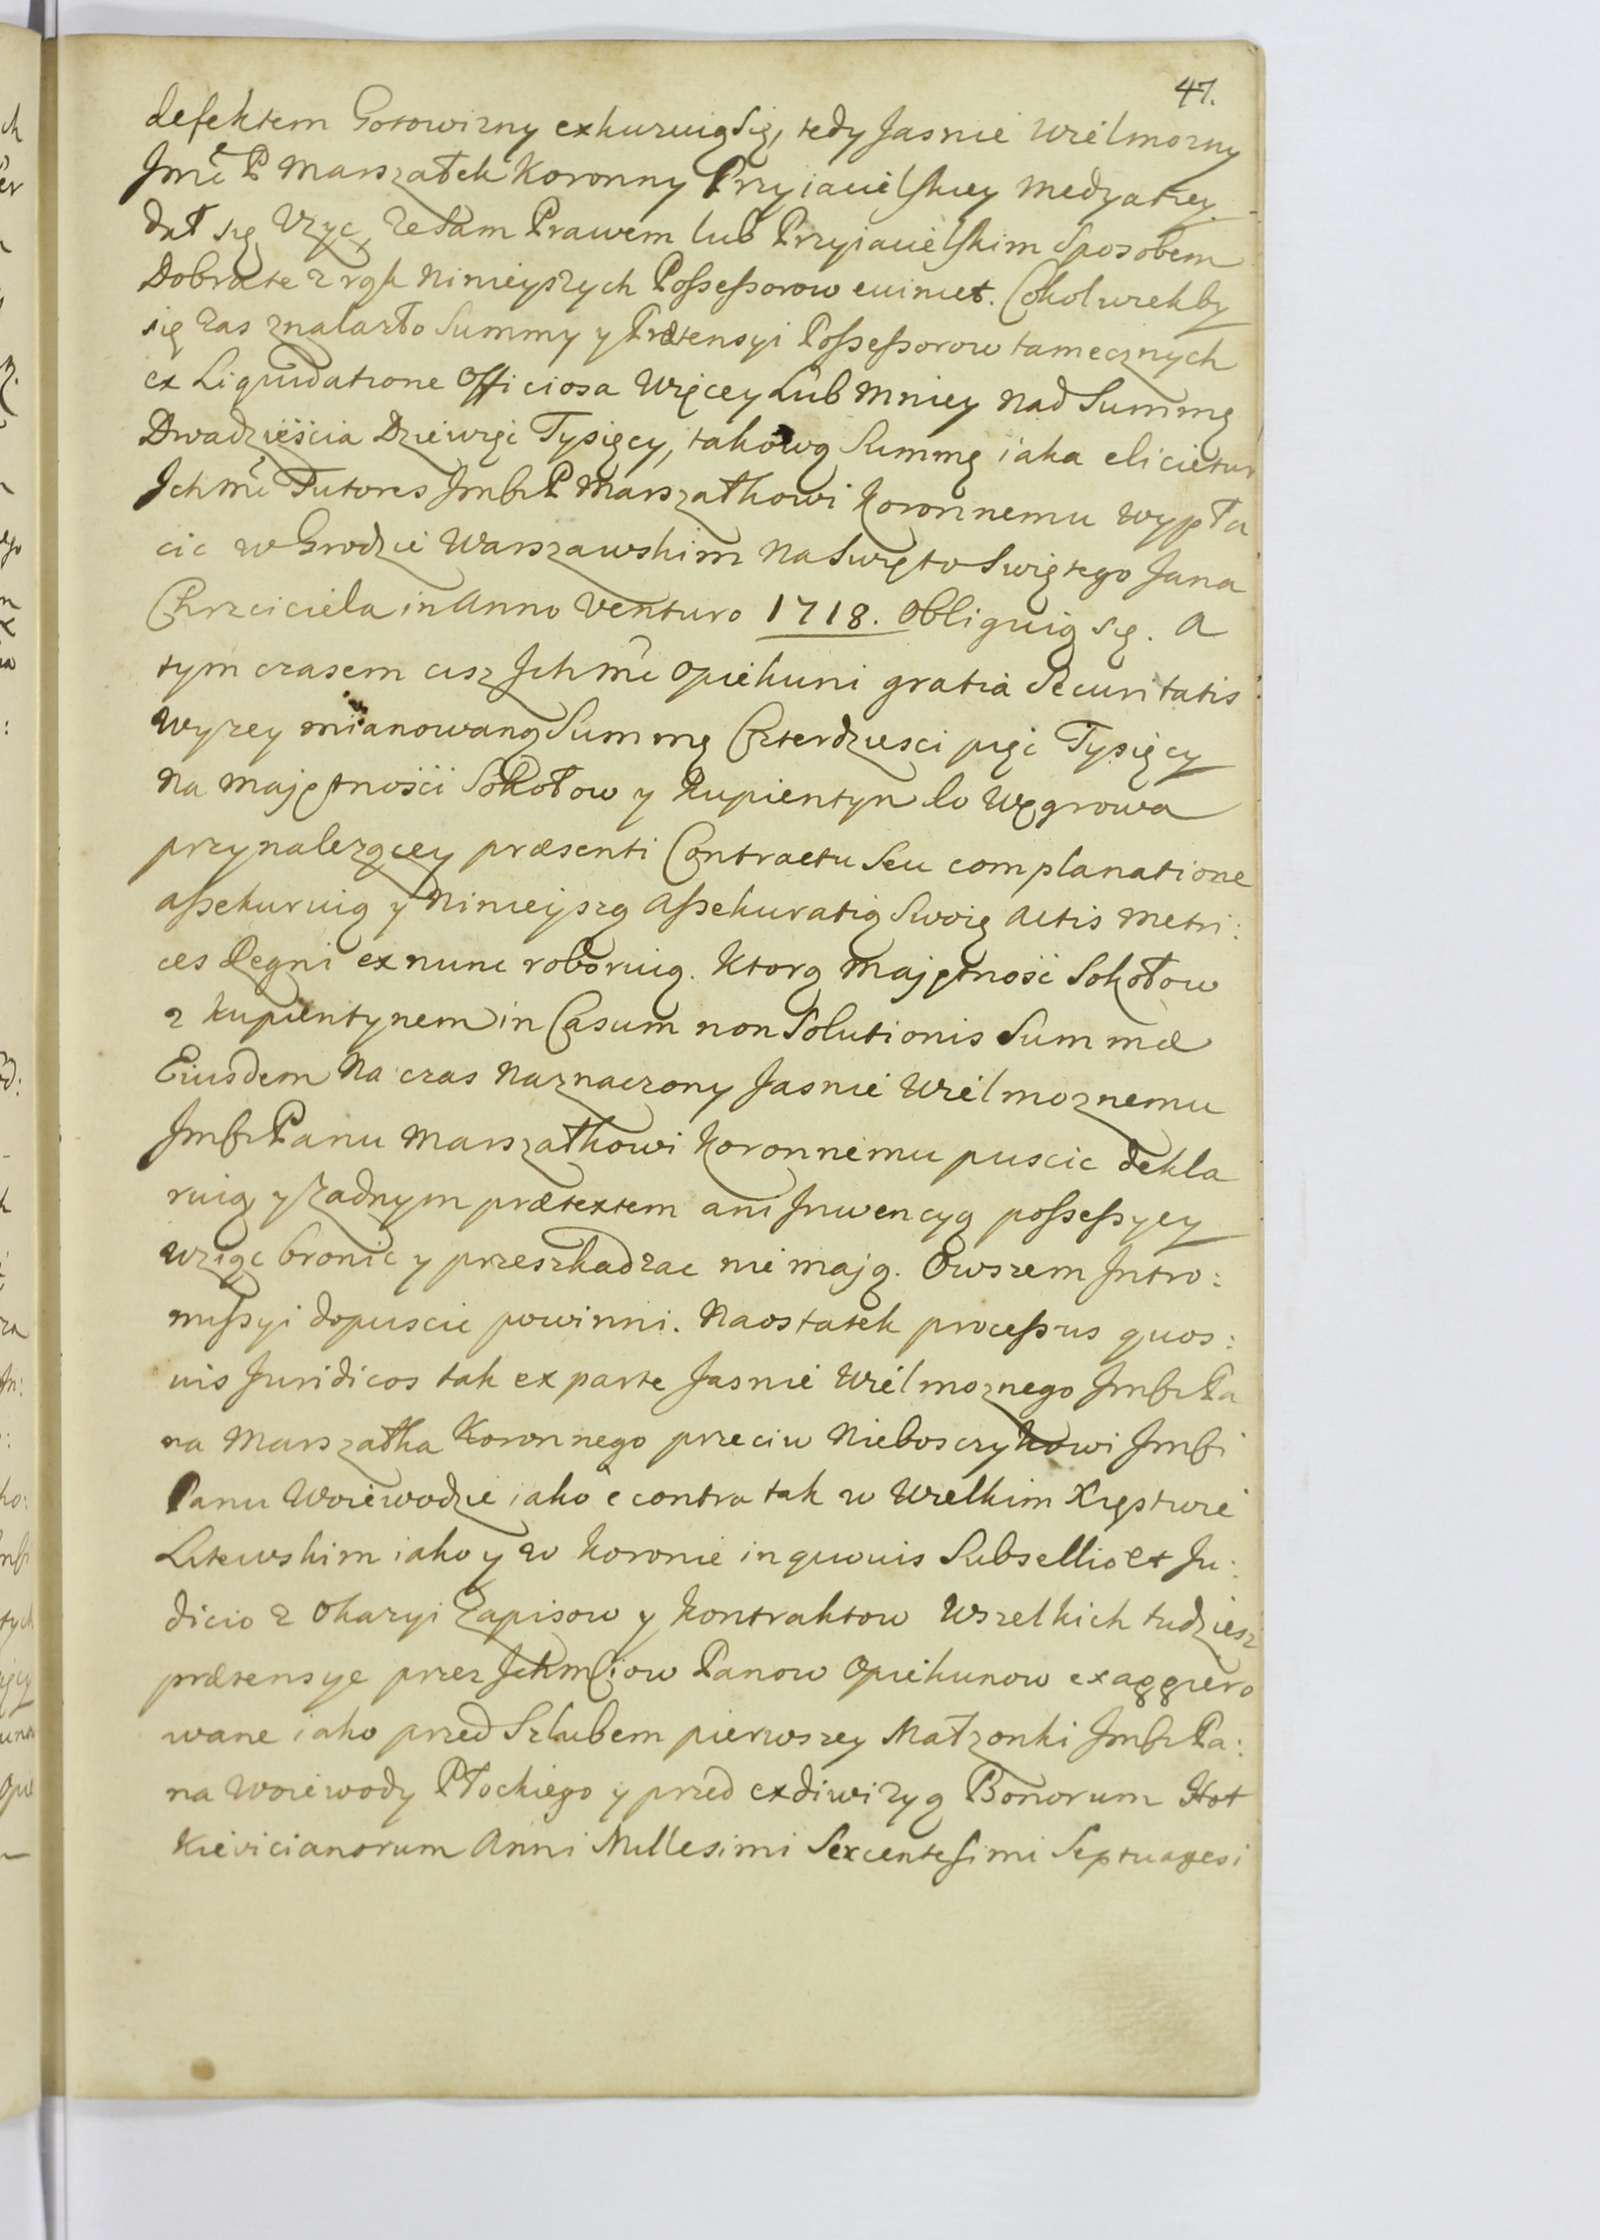 47.
defektem Gotowizny exkuzuią się, tedy Jasnie Wielmozny
Jmć P Marszałek Koronny Przyiacielskiey Medyatiey
dał się Uzyc, ze sam Prawem lub Przyiacielskim Sposobem
Dobra te z rąk Ninieyszych Possessorow euincet. Cokolwiekby
się zas znalazło Summy y Prætensyi Possessorow tamecznych
ex Liquidatione Officiosa Więcey Lub Mniey nad Summę
Dwadzieścia Dziewięć Tysięcy, takową Summę iaka elicietur
Ichmć Tutores Jmści P Marszałkowi Koronnemu Wypła
cic w Grodzie Warszawskim Na Swięto Swiętego Jana
Chrzciciela in Anno Venturo 1718. Obliguią się. A
tym czasem cisz Ichmć Opiekuni gratia Securitatis
Wyzey mianowaną Summę Czterdziesci pięć Tysięcy
Na Majętności Sokołow y Kupientyn do Węgrowa
przynalezącey præsenti Contractu Seu complanatione
assekuruią y Ninieyszą Assekuratią Swoię Actis Metri:
ces Regni ex nunc roboruią. Ktorą Majętność Sokołow
z Kupientynem in Casum non Solutionis Summæ
Eiusdem Na czas Naznaczony Jasnie Wielmoznemu
Jmści Panu Marszałkowi Koronnemu puscic dekla
ruią y zadnym prætextem ani Inwencyą possessyey
wziąc bronic y przeszkadzac nie mają. Owszem Intro:
missyi dopuscic powinni. Naostatek processus quos:
uis Juridicos tak ex parte Jasnie Wielmoznego Jmści Pa
na Marszałka Koronnego przeciw Nieboszczykowi Jmści
Panu Woiewodzie iako e contra tak w Wielkim Xięstwie
Litewskim iako y w Koronie in quouis Subsellio et Ju:
dicio z Okazyi Zapisow y Kontraktow Wszelkich tudziesz
prætensye przez Ichmściow Panow Opiekunow exaggiero
wane iako przed Szlubem pierwszey Małzonki Jmści Pa:
na Woiewody Płockiego y przed exdiwizyą Bonorum Hot
Kievicianorum Anni Millesimi Sexcentesimi Septuagesi